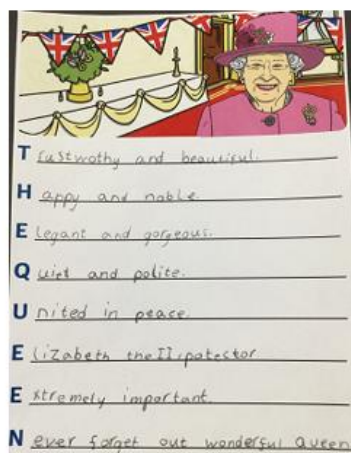 Trustwothy and beautiful.
Happy and noble.
Elegant and gorgeous.
Quiet and polite.
United in peace.
Elizabeth the II ipatector
Extremely important.
Never forget out wonderful Queen